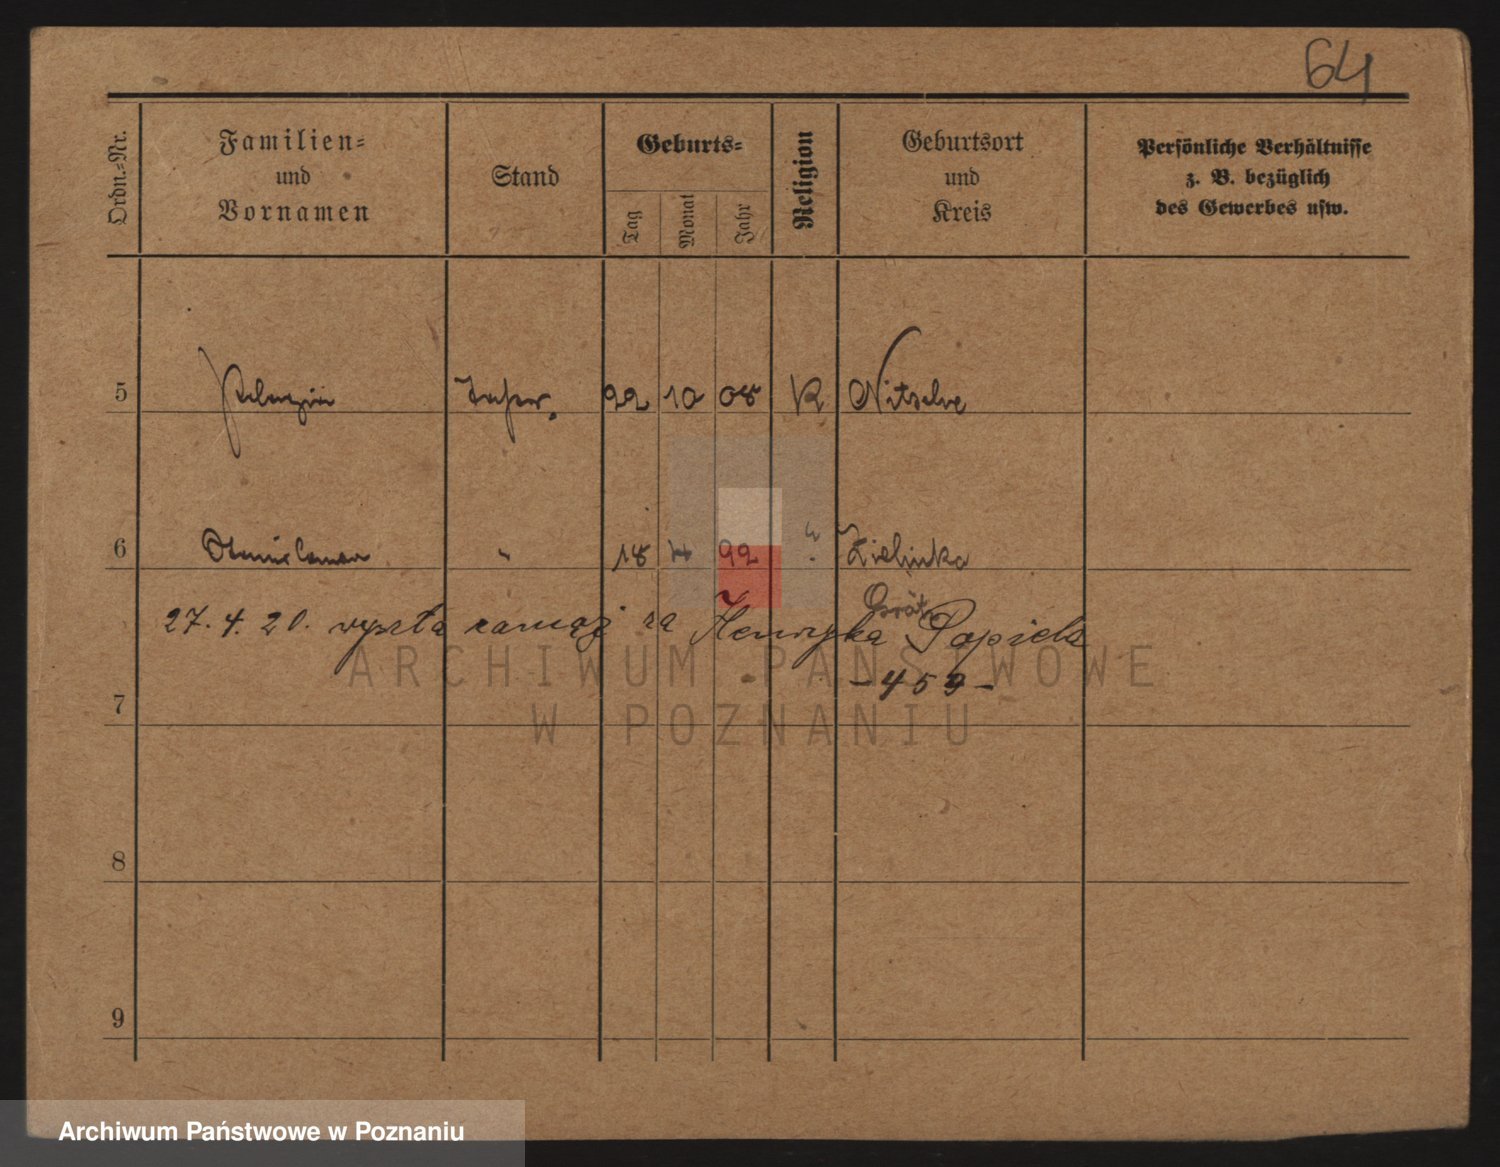 64
Ordn.-Nr.
Familien-
und
Vornamen
Stand
Geburts-
Tag
Monat
Jahr
Religion
Geburtsort
und
Kreis
Persönliche Verhältnisse
z. B. bezüglich
des Gewerbes usw.
5 22 10 08 K Nitsche
6 18 4 92 Zielinko
Grätz
27. 4. 20. wyszła zamąż za Henryka Popiela
- 459 -
7
8
9
ARCHIWUM PAŃSTWOWE
W POZNANIU
Archiwum Państwowe w Poznaniu